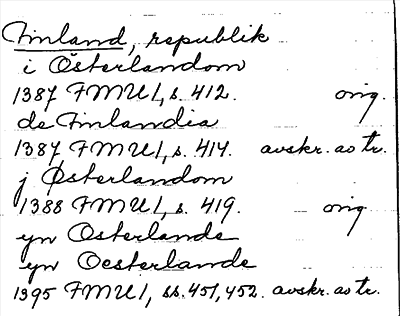 Finland, republik
i Österlandom
1387 FMU I, s. 412. orig.
de Finlandia
1387 FMU I, s. 414. avskr. ao tr.
j Østerlandom
1388 FMU I, s. 419. orig.
yn Osterlande
yn Oesterlande
1395 FMU I, ss. 451, 452. avskr. ao tr.